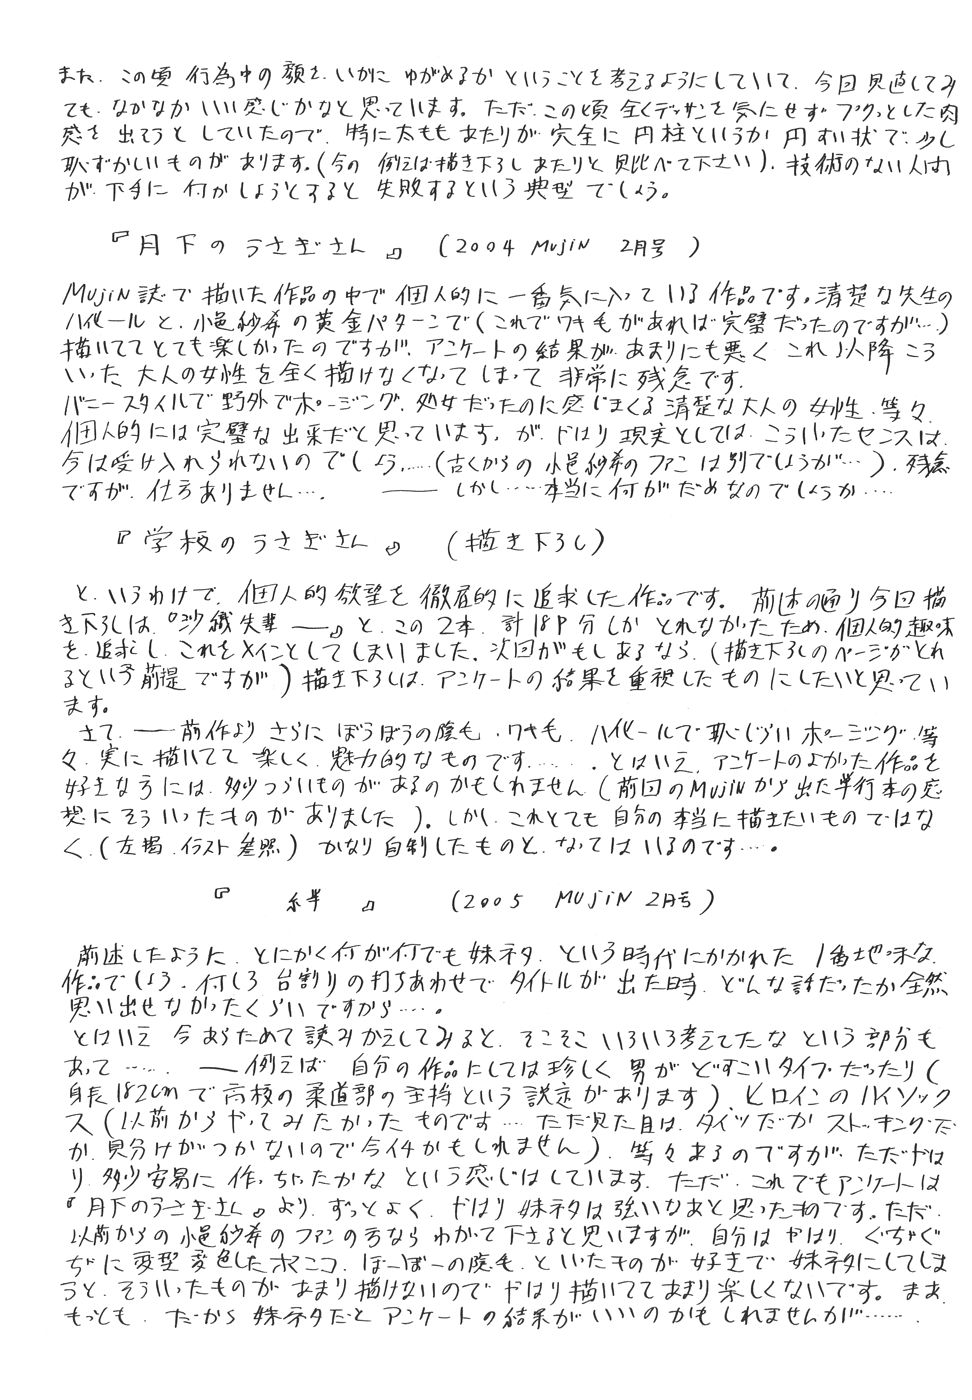 また、この頃 行為中の顔を、いかに ゆがめるか ということを考えるようにしていて、今回 見直してみ
ても、なかなか いい感じかなと 思っています。ただ、この頃 全くデッサンを 気にせず プクッとした肉
感を 出そうと していたので、特に太もも あたりが 完全に 円柱というか 円すい状で、少し
恥ずかしいものがあります。(今の 例えば描き下ろし あたりと 見比べて下さい)、技術のない人間
が、下手に 何かしようとすると 失敗するという 典型 でしょう。
『月下の うさぎさん』 (2004 MUJIN 2月号)
MUJIN誌で 描いた 作品の中で 個人的に 一番気に入って いる 作品です。清楚な先生の
ハイヒールと、小邑紗希の黄金パターンで (これで ワキ毛があれば 完璧だったのですが…)
描いてて とても楽しかったのですが、アンケートの結果が、あまりにも悪く これ以降 こう
いった 大人の女性を 全く描けなくなって しまって 非常に残念です。
バニースタイルで 野外でポージング、処女だったのに感じまくる 清楚な大人の女性、等々、
個人的には 完璧な 出来だと 思っています。が、やはり 現実としては、こういったセンスは、
今は受け入れられないのでしょう……(古くからの 小邑紗希のファンは別でしょうが…)、残念
ですが、仕方ありません…。 ―― しかし……本当に 何がだめなのでしょうか……
『学校の うさぎさん』 (描き下ろし)
と、いうわけで、個人的欲望を 徹底的に 追求した作品です。前述の通り今回描
き下ろしは、『沙織先輩 ――』と、この2本、計18P分しか とれなかったため、個人的趣味
を、追求し、これをメインとしてしまいました。次回がもしあるなら、(描き下ろしのページがとれ
るという前提 ですが)描き下ろしは、アンケートの結果を重視したものにしたいと思ってい
ます。
さて、―― 前作より さらに ぼうぼうの陰毛、ワキ毛、ハイヒールで恥じらい ポージング、等
々、実に 描いてて 楽しく、魅力的なものです……。とはいえ、アンケートのよかった作品を
好きな方には、多少つらいものがあるのかもしれません (前回のMUJINから出た単行本の感
想に そういったものがありました)。しかし、これとても 自分の本当に描きたいものではな
く、(左掲、イラスト参照) かなり自制したものと、なっては いるのです…。
『 絆 』 (2005 MUJIN 2月号)
前述したように、とにかく何が何でも妹ネタ、という時代にかかれた 1番地味な
作品でしょう。何しろ 台割りの打ちあわせで タイトルが 出た時、どんな話だったか全然
思い出せなかったくらいですから…。
とはいえ 今 あらためて 読みかえしてみると、そこそこ いろいろ考えてたな という部分も
あって…… ―― 例えば 自分の作品にしては珍しく 男が どすこいタイプだったり(
身長182cmで 高校の柔道部の主将という 設定があります)、ヒロインのハイソック
ス(以前からやってみたかったものです… ただ見た目は、タイツだか ストッキングだ
か、見分けがつかないので今イチかもしれません)、等々あるのですが、ただやは
り、多少安易に 作っちゃったかな という感じはしています。ただ、これでもアンケートは
『月下のうさぎさん』より、ずっとよく、やはり 妹ネタは強いなあと思ったものです。ただ、
以前からの 小邑紗希のファンの方なら わかって下さると思いますが、自分は やはり、ぐちゃぐ
ちゃに 変型 変色したオマ○コ、ぼーぼーの陰毛、といったものが 好きで 妹ネタにしてしま
うと、そういったものが あまり描けないので やはり描いてて あまり 楽しくないです。まあ、
もっとも、だから 妹ネタだと アンケートの結果がいいのかもしれませんが……。